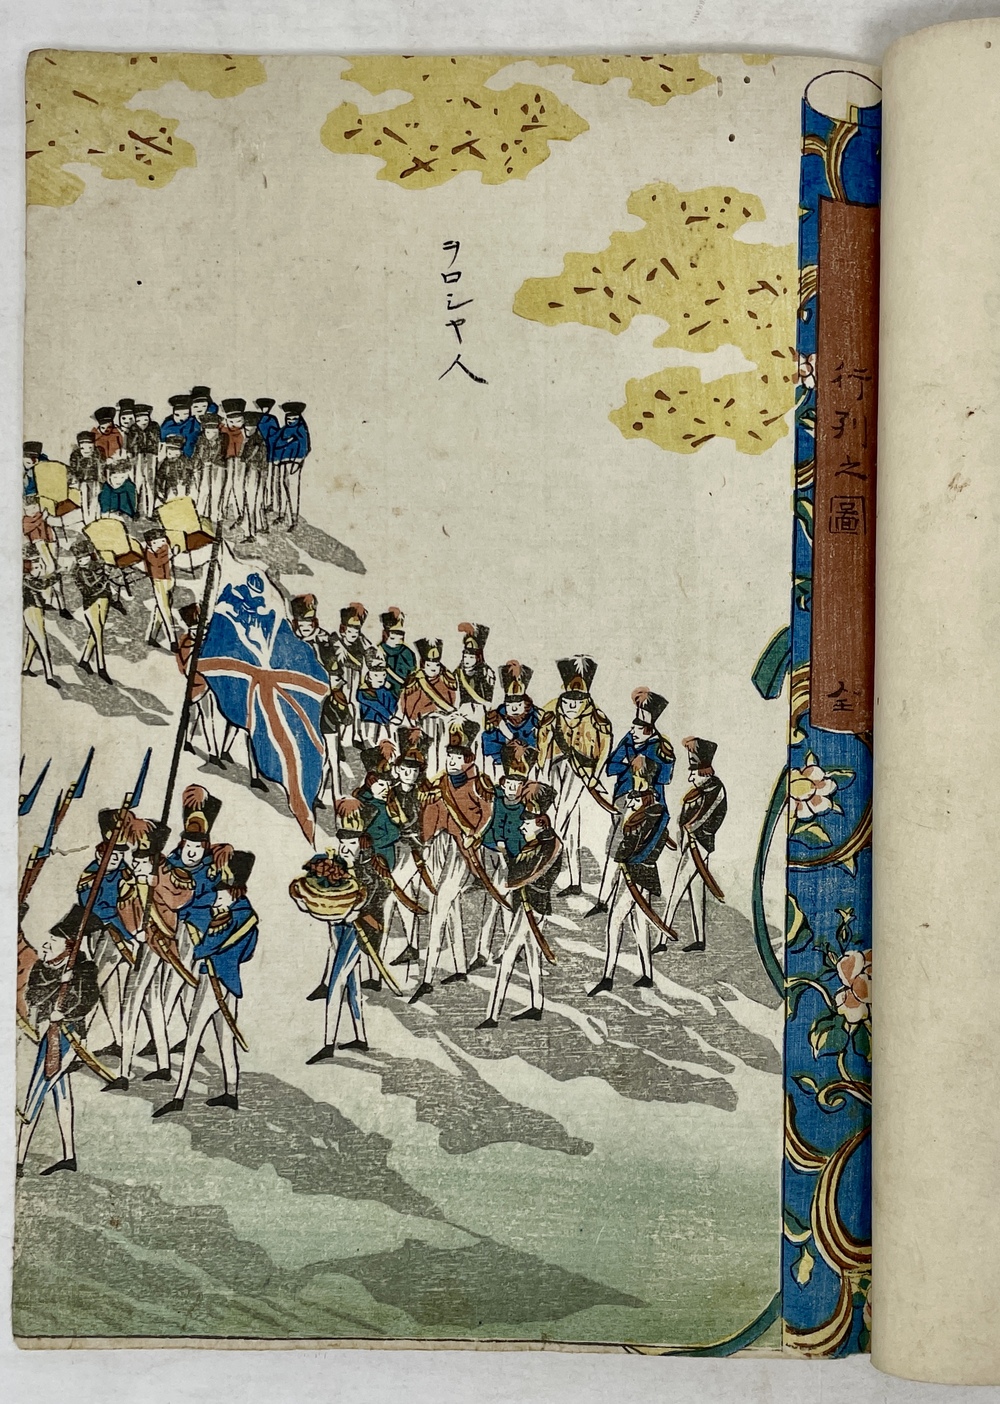 行列之圖 全
ヲロシヤ人